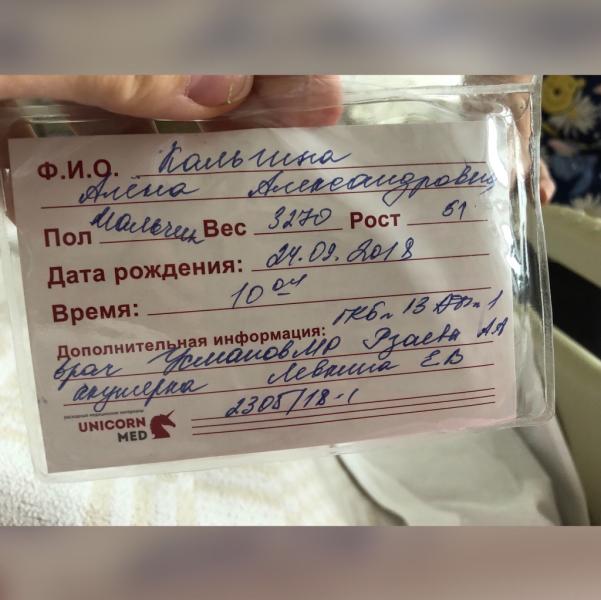 Ф.И.О. Кальгина
Алёна Александровна
Пол Мальчик Вес 3270 Рост 51
Дата рождения: 24.09.2018
Время: 10 04
Дополнительная информация: ГКБ 13 1
врач Усманов МО Рзаева АА
акушерка Левкина ЕВ
2305/18-1
расходные медицинские материалы
UNICORN
MED